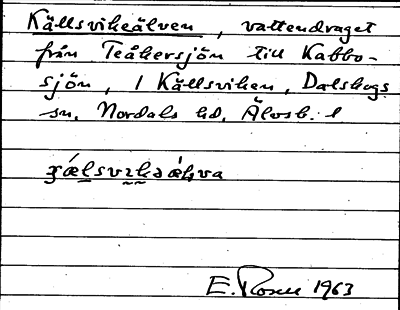 Källsvikeälven, vattendraget
från Teåkersjön till Kabbo-
sjön, 1 Källsviken, Dalskogs
sn, Nordals hd, Älvsb. l
E. Rosell 1963